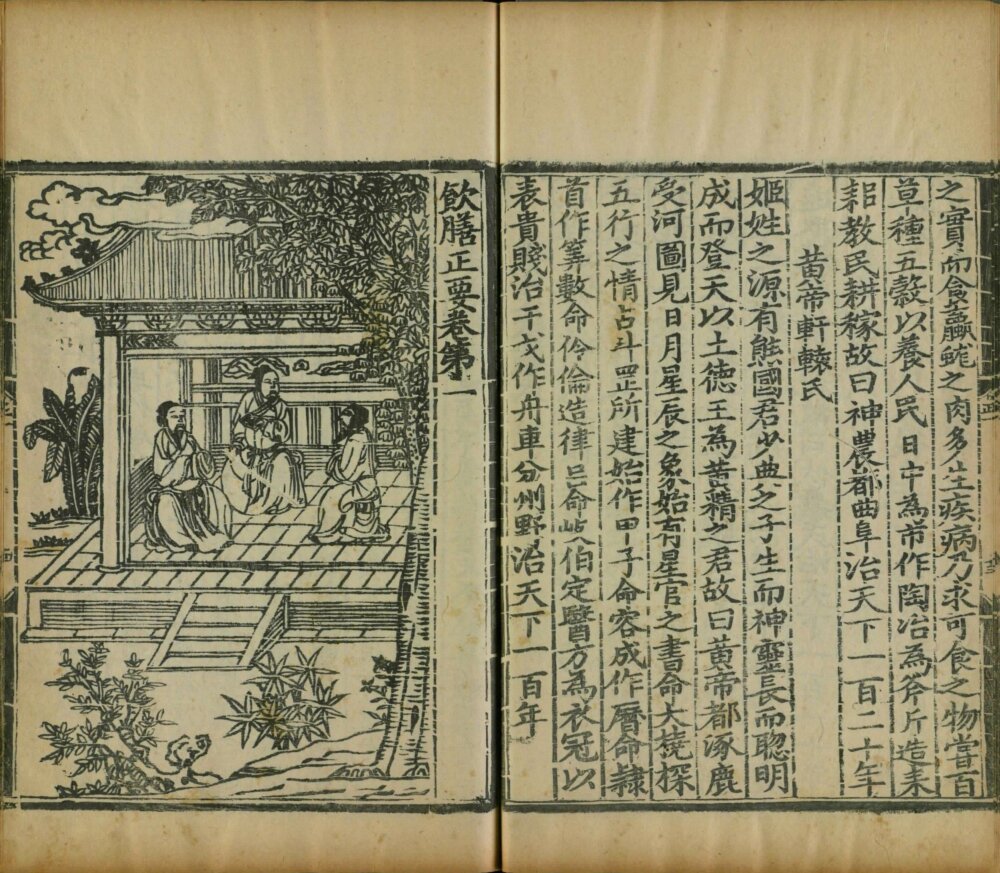 之實而食蠃蛖之肉多生疾病乃求可食之物嘗百
草種五穀以養人民日中為市作陶冶為斧斤造耒
耜教民耕稼故曰神農都曲阜治天下一百二十年
黃帝軒轅氏
姬姓之源有熊國君少典之子生而神靈長而聰明
成而登天以土德王為黃精之君故曰黃帝都涿鹿
受河圖見日月星辰之象始有星官之書命大撓探
五行之情占斗罡所建始作甲子命容成作曆命隸
首作筭數命伶倫造律呂命岐伯定醫方為衣冠以
表貴賤治干戈作舟車分州野治天下一百年
飲膳正要卷第一